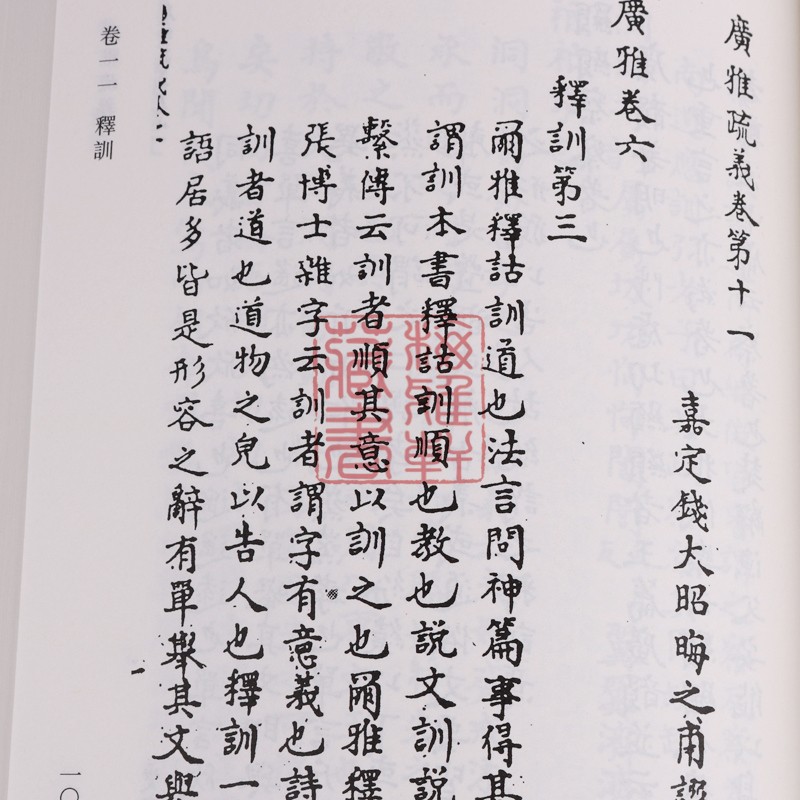 廣雅疏義卷第十一
嘉定錢大昭晦之甫譔
廣雅卷六
釋訓第三
爾雅釋詁訓道也法言問神篇事得其
謂訓本書釋詁訓順也教也說文訓說
繫傳云訓者順其意以訓之也爾雅釋
張博士雜字云訓者謂字有意義也詩
訓者道也道物之皃以告人也釋訓一
語居多皆是形容之辭有單舉其文與
卷一一 釋訓
一〇